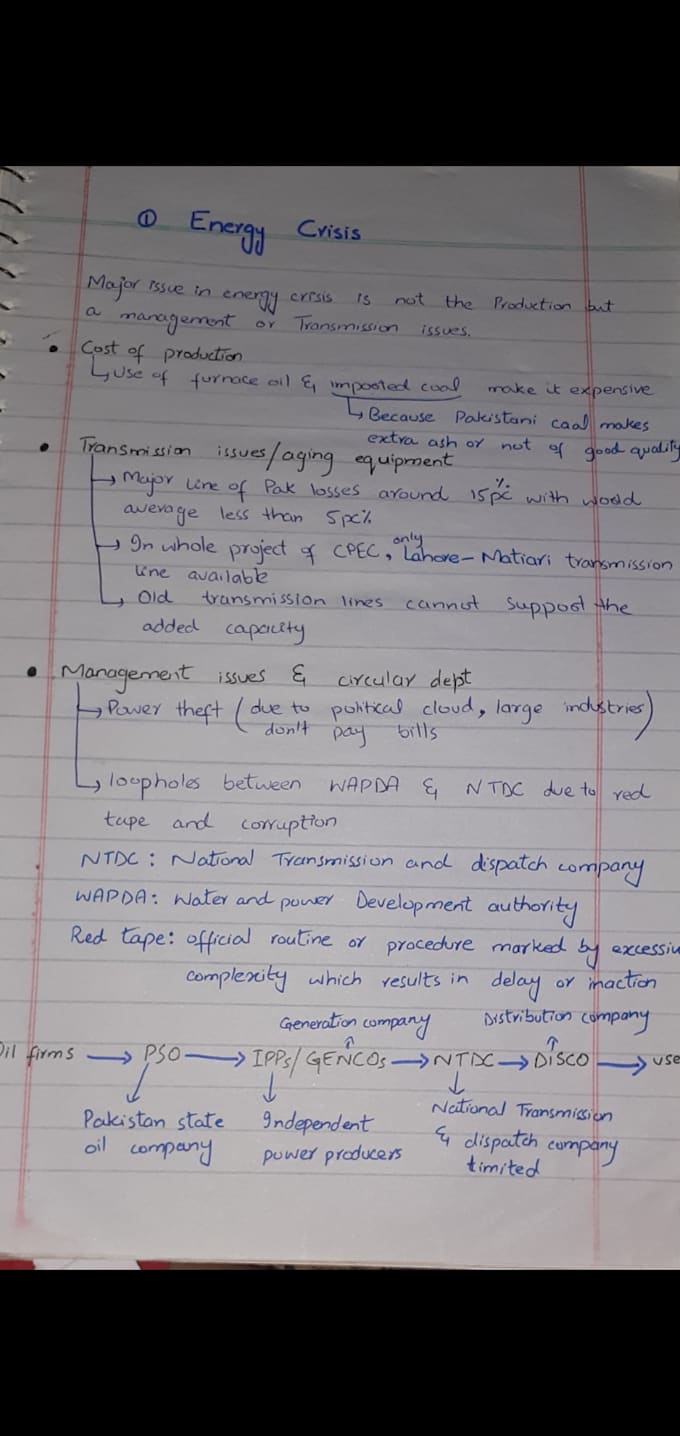 ① Energy Crisis
Major issue in energy crisis is not the Production but
a management or Transmission issues.
• Cost of production
↳ Use of furnace oil & imported coal make it expensive
↳ Because Pakistani coal makes
extra ash or not of good quality
• Transmission issues/aging equipment
→ Major line of Pak losses around 15pc% with world
average less than 5pc%
→ In whole project of CPEC, only Lahore-Matiari transmission
line available
↳ Old transmission lines cannot support the
added capacity
• Management issues & circular dept
→ Power theft (due to political cloud, large industries)
don't pay bills
↳ loopholes between WAPDA & NTDC due to red
tape and corruption
NTDC: National Transmission and dispatch company
WAPDA: Water and power Development authority
Red tape: official routine or procedure marked by excessiv
complexity which results in delay or inaction
Generation company Distribution company
Oil firms → PSO → IPPs/GENCOs → NTDC → DISCO → use
Pakistan state Independent National Transmission
oil company power producers & dispatch company
limited